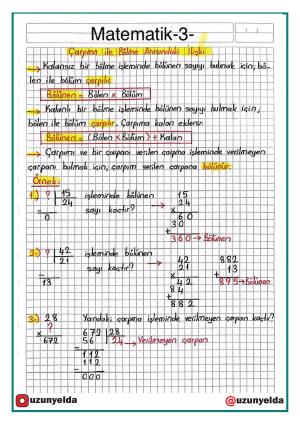 Matematik-3-
Çarpma ile Bölme Arasındaki İlişki
→ Kalansız bir bölme işleminde bölünen sayıyı bulmak için, böl-
len ile bölüm çarpılır.
Bölünen = Bölen x Bölüm
→ Kalanlı bir bölme işleminde bölünen sayıyı bulmak için,
bölen ile bölüm çarpılır. Çarpıma kalan eklenir.
Bölünen = (Bölen x Bölüm) + Kalan
→ Çarpım ve bir çarpan verilen çarpma işleminde verilmeyen
çarpanı bulmak için, çarpım verilen çarpana bölünür.
Örnek:
1-) ? 15 işleminde bölünen 15
- 24 sayı kaçtır? → 24
0 x 60
30
+
360 → Bölünen
2-) ? 42 işleminde bölünen 42 882
- 21 sayı kaçtır? → x 21 + 13
13 42 895 → Bölünen
84
+
882
3-) 28 Yandaki çarpma işleminde verilmeyen çarpan kaçtır?
x ? 672 28
672 - 56 24 → Verilmeyen çarpan
112
- 112
000
uzunyelda @uzunyelda